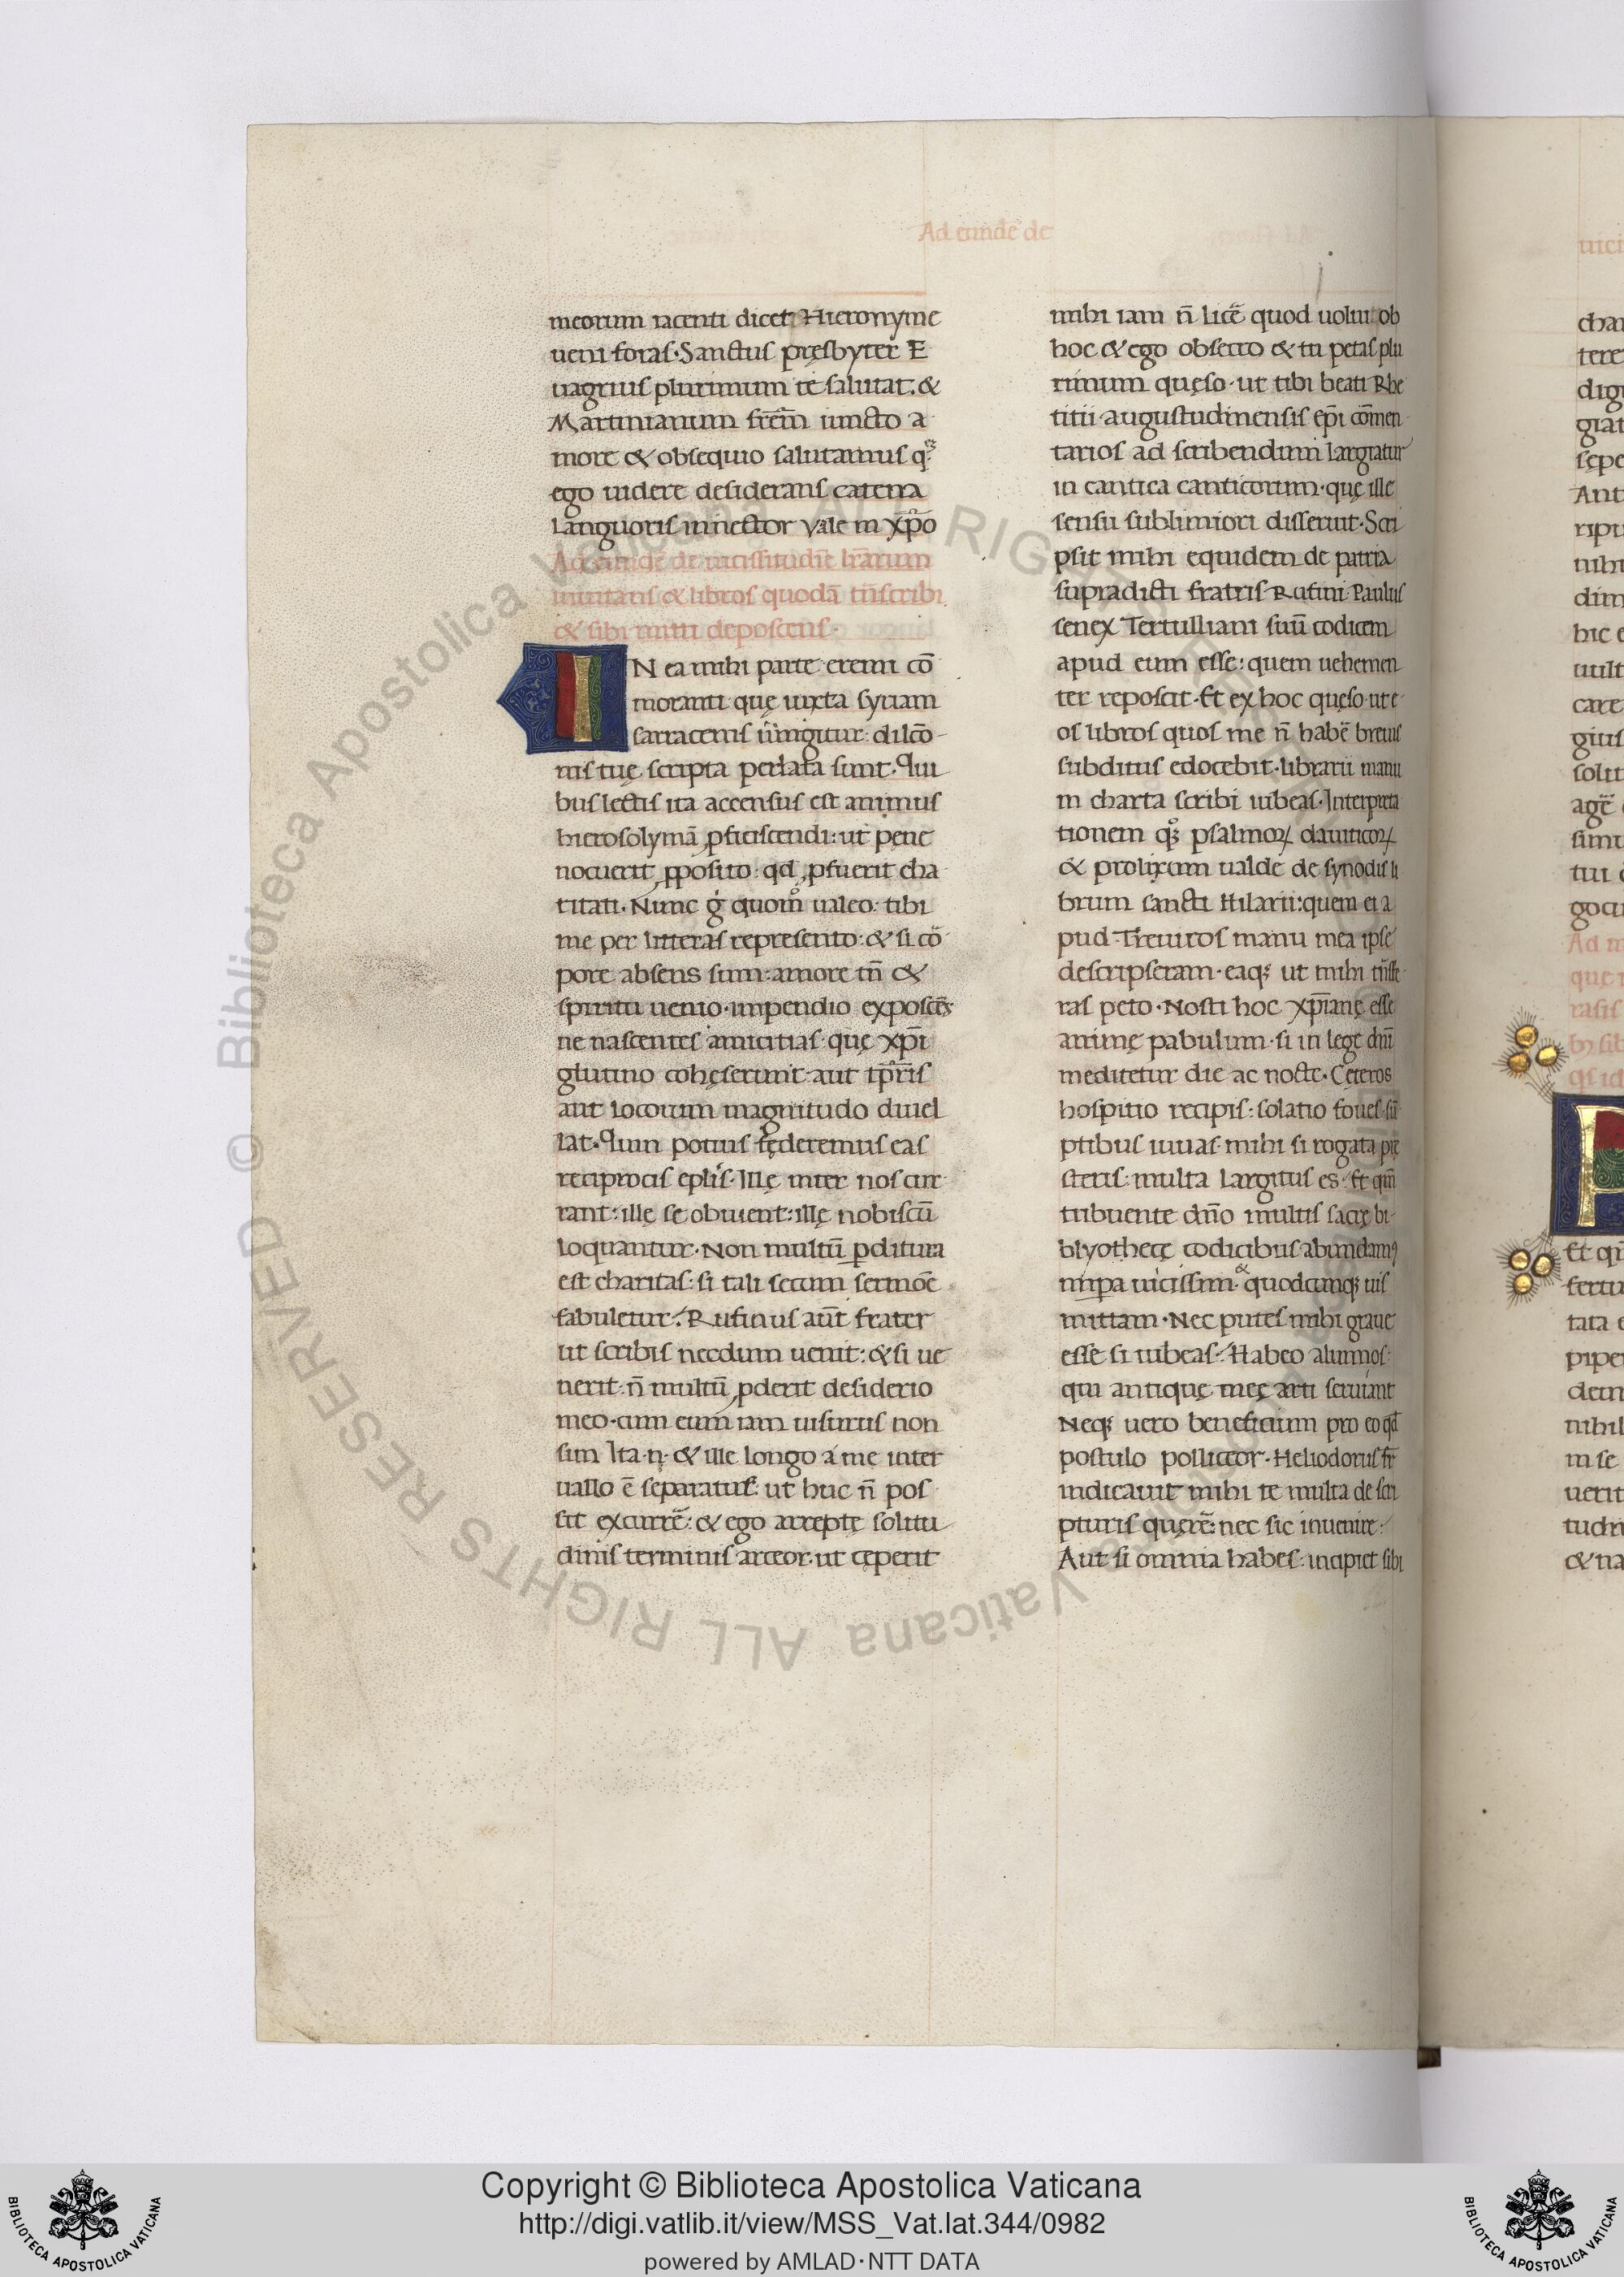 Ad eundē de
meorum iacenti dicet: Hieronyme
ueni foras. Sanctus presbyter E
uagrius plurimum te salutat: &
Martinianum frēm iuncto a
more & obsequio salutamus q̄;
ego uidere desiderans catena
languoris innector Vale in xp̄o
Ad eundē de uicissitudīe lr̄arum
& libros quodā trn̄scribi
& sibi mitti deposcens.
IN ea mihi parte eremi cō
moranti quę iuxta syriam
sarracenis iūngitur: dilcō
nis tuę scripta perlata sunt. Qui
bus lectis ita accensus est animus
hierosolymā ꝓficiscendi: ut pęne
nocuerit ꝓposito: qđ ꝓfuerit cha
titati. Nunc ġ quom̊ ualeo: tibi
me per litteras represento: & si cō
pore absens sum: amore tn̄ &
spiritu uenio. impendio exposcēs
ne nascentes amicitias. quę xp̄i
glutino cohęserunt: aut tp̄ris
aut locorum magnitudo diuel
lat. Quin potius fęderemus eas
reciprocis eplis. Illę inter nos cur
rant: illę se obuient: illę nobiscū
loquantur. Non multū ꝑditura
est charitas: si tali secum sermōe
fabuletur. Rufinus aūt frater
ut scribis necdum uenit: & si ue
nerit: n̄ multū ꝓderit desiderio
meo. cum eum iam uisurus non
sim Ita .n. & ille longo a me inter
uallo ē separatus: ut huc n̄ pos
sit excurrē: & ego arreptę solitu
dinis terminis arceor. ut cęperit
mihi iam n̄ licē quod uolui ob
hoc & ego obsecro & tu petas plu
rimum quęso. ut tibi beati Rhe
titii augustudinensis ep̄i cōmen
tarios ad scribendum largiatur
in cantica canticorum. quę ille
sensu sublimiori disseruit. Scri
psit mihi equidem de patria
supradicti fratris Rufini: Paulus
senex Tertulliani suū codicem
apud eum esse: quem uehemen
ter reposcit. Et ex hoc quęso ut e
os libros quos me n̄ habē breuis
subditus edocebit. librarii manu
in charta scribi iubeas. Interpreta
tionem q̊ꝫ psalmoꝝ dauiticoꝝ
& prolixum ualde de synodis li
brum sancti Hilarii: quem ei a
pud Treuiros manu mea ipse
descripseram. eaqꝫ ut mihi trn̄sfe
ras peto. Nosti hoc xp̄ianę esse
animę pabulum. si in lege dn̄i
meditetur die ac nocte. Cęteros
hospitio recipis: solatio foues sū
ptibus iuuas. mihi si rogata prę
steris: multa largitus es. Et qm̄
tribuente dn̄o multis sacrę bi
blyothecę codicibus abundamꝰ
impa uicissim. & quodcunqꝫ uis
mittam. Nec putes mihi graue
esse si iubeas. Habeo alumnos
qui antiquę męę arti seruiant
Neqꝫ uero beneficium pro eo qđ
postulo polliceor. Heliodorus fr̄
indicauit mihi te multa de scri
pturis quęrē: nec sic inuenire:
Aut si omnia habes: incipiet sibi
Copyright © Biblioteca Apostolica Vaticana
http://digi.vatlib.it/view/MSS_Vat.lat.344/0982
powered by AMLAD·NTT DATA